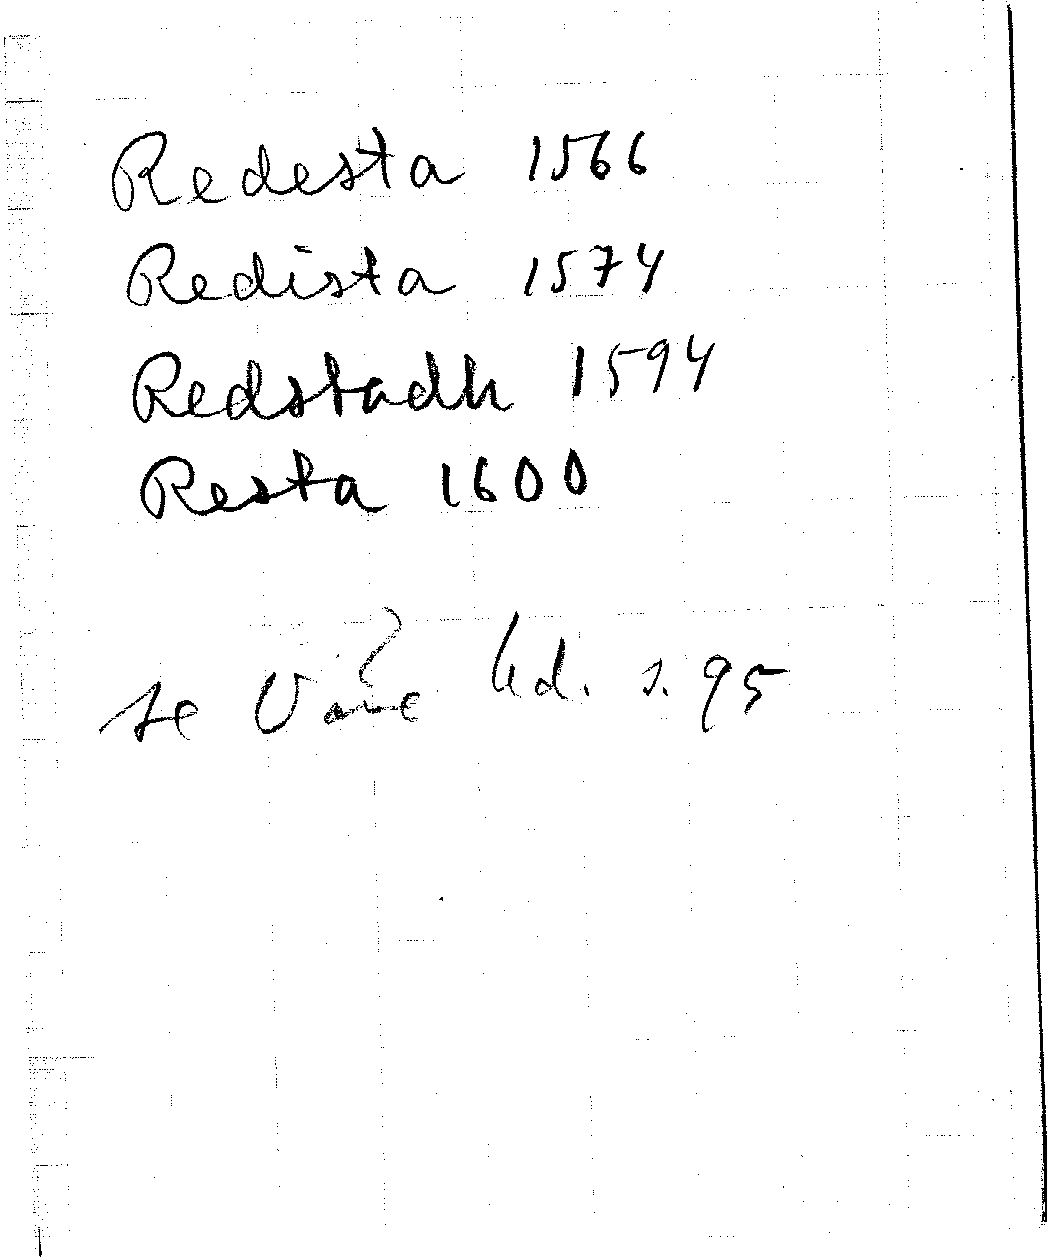 Redesta 1566
Redista 1574
Redstadh 1594
Resta 1600
se s. 95